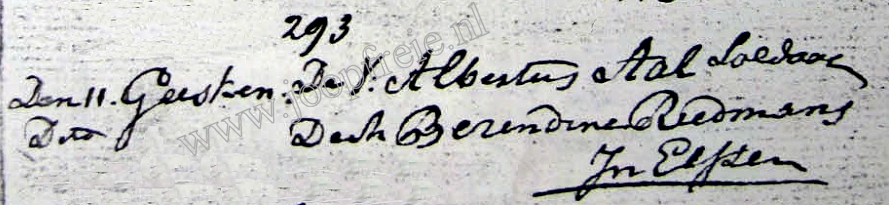 293
Den 11. Geesken. De V. Albertus Aal Soldaat
Dito Des h Berendine Riedmans
In Elssen
www.joopfreie.nl